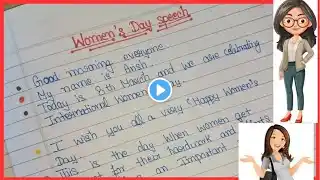 Women's Day speech
Good morning everyone.
My name is Ansh.
Today is 8th March and we are celebrating
International Women's Day.
I wish you all a very Happy Women's
Day.
This is the day when women get
for their hardwork and
an Important